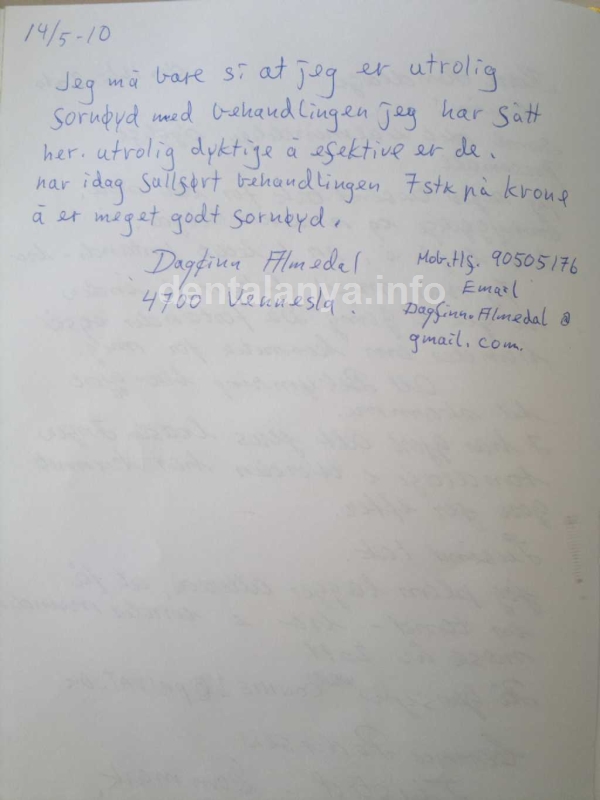 14/5-10
Jeg må bare si at jeg er utrolig
fornøyd med behandlingen jeg har fått
her. utrolig dyktige å efektive er de.
har idag fullført behandlingen 7stk på krone
å er meget godt fornøyd.
Dagfinn Almedal
4700 Vennesla.
Mob.tlf. 90505176
Email
Dagfinn.Almedal@
gmail.com.
dentalanya.info